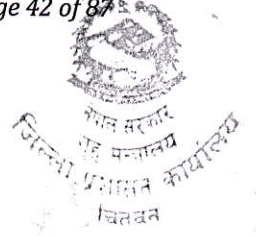 ge 42 of 87
नेपाल सरकार
गृह मन्त्रालय
जिल्ला प्रशासन कार्यालय
चितवन